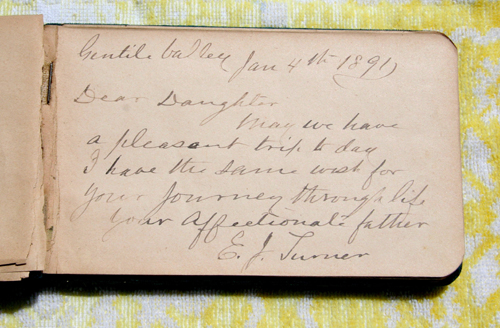 Gentile Valley Jan 4th 1891
Dear Daughter
May we have
a pleasant trip to day
I have the same wish for
your journey through life
your affectionate father
E. J. Turner